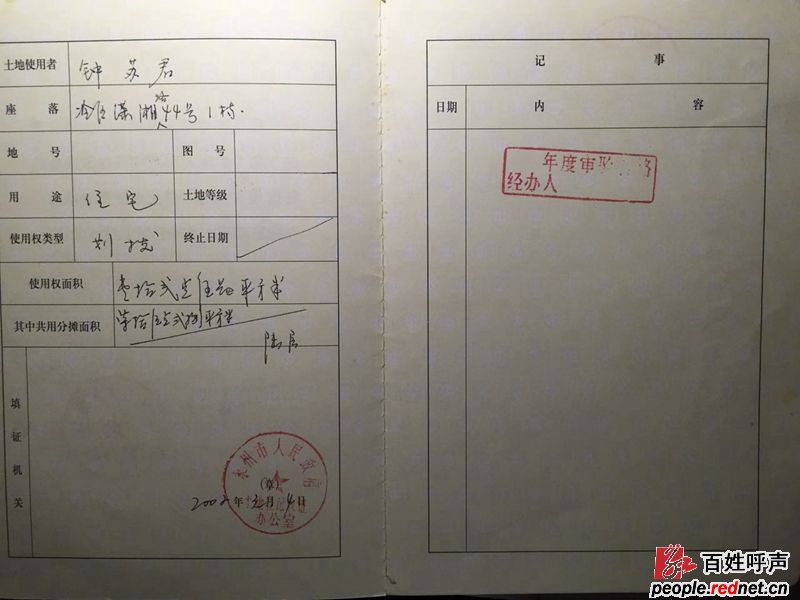 土地使用者 钟苏君
座落 冷区潇湘路44号1栋.
地号 图号
用途 住宅 土地等级
使用权类型 划拨 终止日期
使用权面积 壹拾贰点伍 平方米
其中共用分摊面积 平方米
填证机关
永州市人民政府
(章)
2002年 月4日
办公室
记事
日期 内容
年度审
经办人
百姓呼声
people.rednet.cn